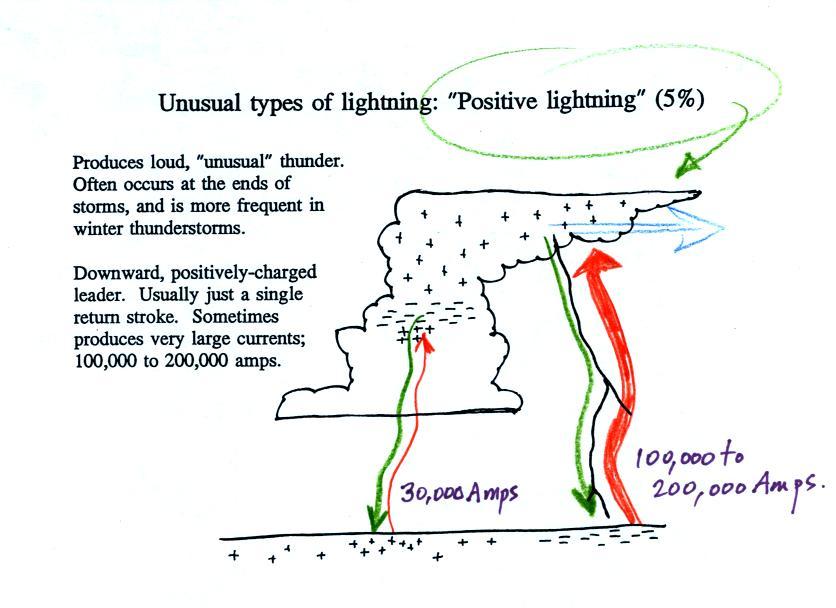 Unusual types of lightning: "Positive lightning" (5%)
Produces loud, "unusual" thunder.
Often occurs at the ends of
storms, and is more frequent in
winter thunderstorms.
Downward, positively-charged
leader. Usually just a single
return stroke. Sometimes
produces very large currents;
100,000 to 200,000 amps.
30,000 Amps
100,000 to
200,000 Amps.